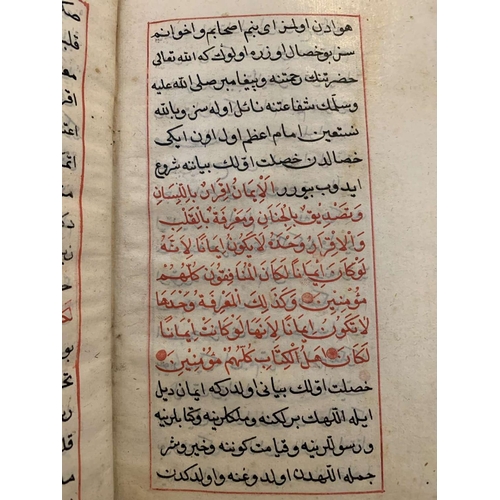 هوادن اولز ای بنم اصحابم و اخوانم
سز بو خصال اوزره اولوك كه الله تعالی
حضرتنك رحمتنه و پیغامبر صلی الله علیه
وسلمك شفاعتنه نائل اوله سز وبالله
نستعین امام اعظم اول اون ایكی
خصالدن خصلت اولك بیاننه شروع
ایدوب بیورر الْاِیمَانُ اِقْرَارٌ بِاللِّسَانِ
وَتَصْدِیقٌ بِالْجَنَانِ وَمَعْرِفَةٌ بِالْقَلْبِ
وَالْاِقْرَارُ وَحْدَهُ لَا یَكُونُ اِیمَانًا لِاَنَّهُ
لَوْ كَانَ اِیمَانًا لَكَانَ الْمُنَافِقُونَ كُلُّهُمْ
مُؤْمِنِینَ وَكَذٰلِكَ الْمَعْرِفَةُ وَحْدَهَا
لَا تَكُونُ اِیمَانًا لِاَنَّهَا لَوْ كَانَتْ اِیمَانًا
لَكَانَ اَهْلُ الْكِتَابِ كُلُّهُمْ مُؤْمِنِینَ
خصلت اولك بیانی اولدركه ایمان دیل
ایله اللهك برلكنه و ملكلرینه و كتابلرینه
و رسوللرینه و قیامت كوننه و خیر و شر
جمله اللهدن اولدوغنه و اولدكدن